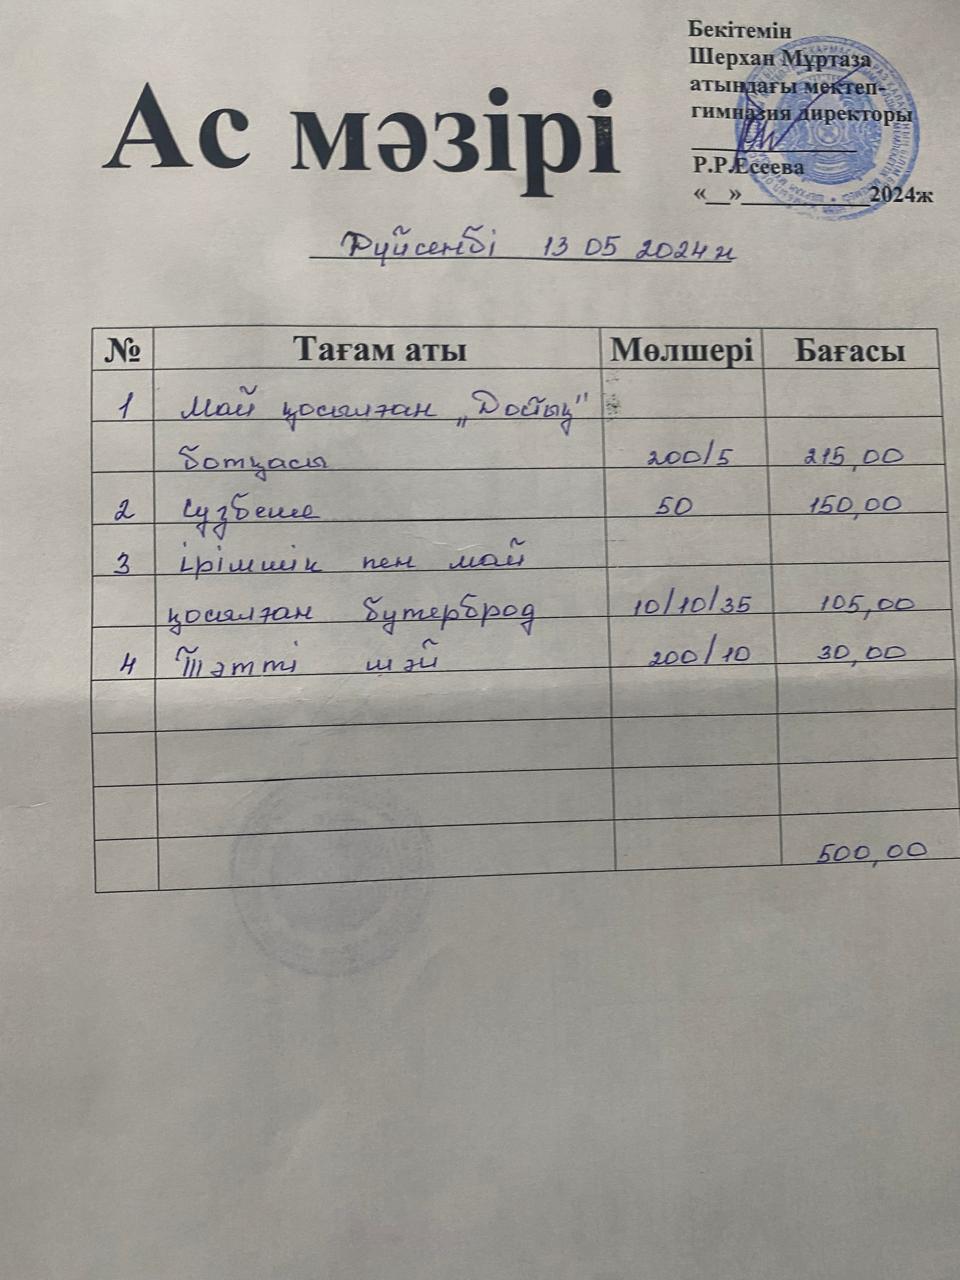 Бекітемін
Шерхан Мұртаза
атындағы мектеп-
гимназия директоры
Р.Р.Есеева
«__»____________2024ж
Ас мәзірі
Дүйсенбі 13 05 2024 ж
№ Тағам аты Мөлшері Бағасы
1 Май қосылған „Достық"
ботқасы 200/5 215,00
2 Сүзбеше 50 150,00
3 ірімшік пен май
қосылған бутерброд 10/10/35 105,00
4 Тәтті шәй 200/10 30,00
500,00